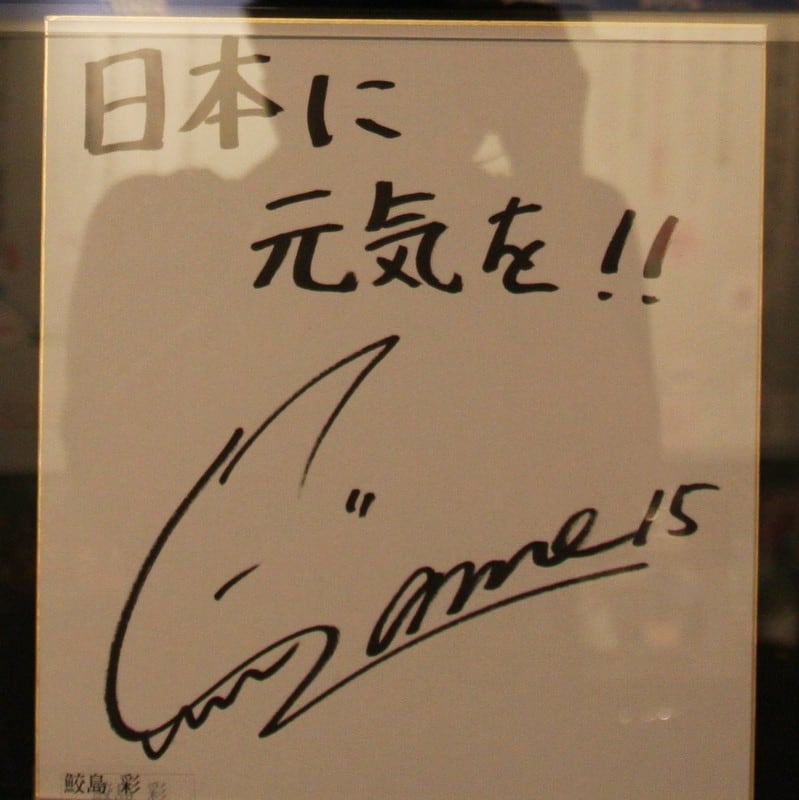 日本に
元気を!!
Same 15
鮫島 彩